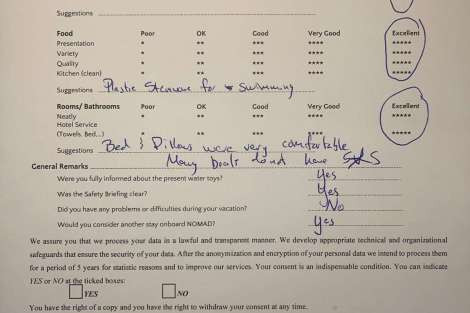 Suggestions
Food Poor OK Good Very Good Excellent
Presentation * ** *** **** *****
Variety * ** *** **** *****
Quality * ** *** **** *****
Kitchen (clean) * ** *** **** *****
Suggestions Plastic for swimming
Rooms/ Bathrooms Poor OK Good Very Good Excellent
Neatly * ** *** **** *****
Hotel Service
(Towels, Bed...) * ** *** **** *****
Suggestions Bed & Pillows were very comfortable
Many boats dond have
General Remarks
Were you fully informed about the present water toys? Yes
Was the Safety Briefing clear? Yes
Did you have any problems or difficulties during your vacation? No
Would you consider another stay onboard NOMAD? Yes
We assure you that we process your data in a lawful and transparent manner. We develop appropriate technical and organizational
safeguards that ensure the security of your data. After the anonymization and encryption of your personal data we intend to process them
for a period of 5 years for statistic reasons and to improve our services. Your consent is an indispensable condition. You can indicate
YES or NO at the ticked boxes:
YES NO
You have the right of a copy and you have the right to withdraw your consent at any time.